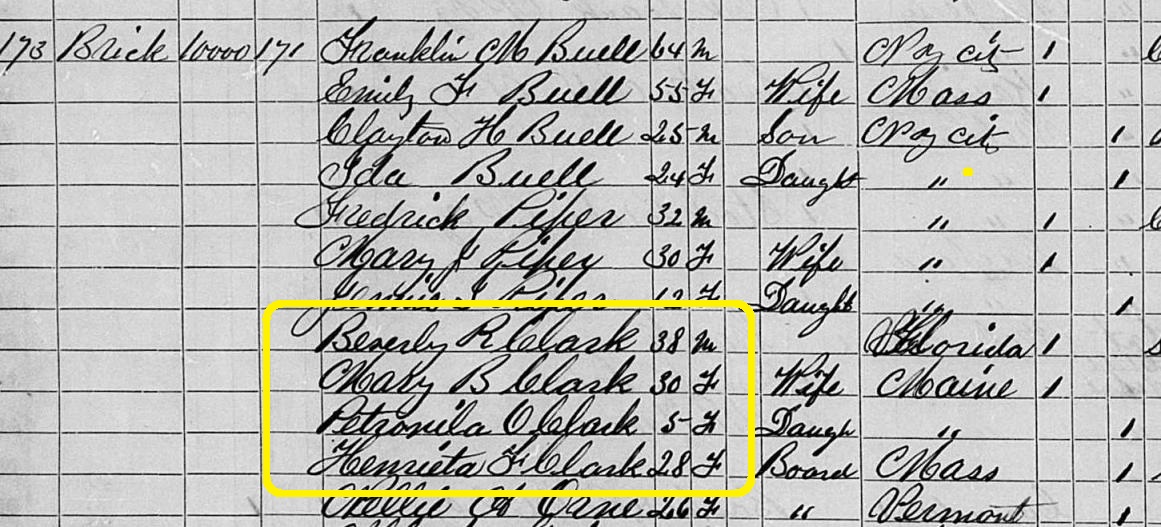 173 Brick 10000 171 Franklin M Buell 64 M N Y city 1
Emily F Buell 55 F Wife Mass 1
Clayton H Buell 25 M Son N Y city 1
Ida Buell 24 F Daught " 1
Fredrick Piper 32 M " 1
Mary J Piper 30 F Wife " 1
Piper 12 F Daught " 1
Beverly R Clark 38 M Florida 1
Mary B Clark 30 F Wife Maine 1
Petronila O Clark 5 F Daugh " 1
Henrieta F Clark 28 F Board Mass 1
Nellie A Lane 26 F " Vermont 1